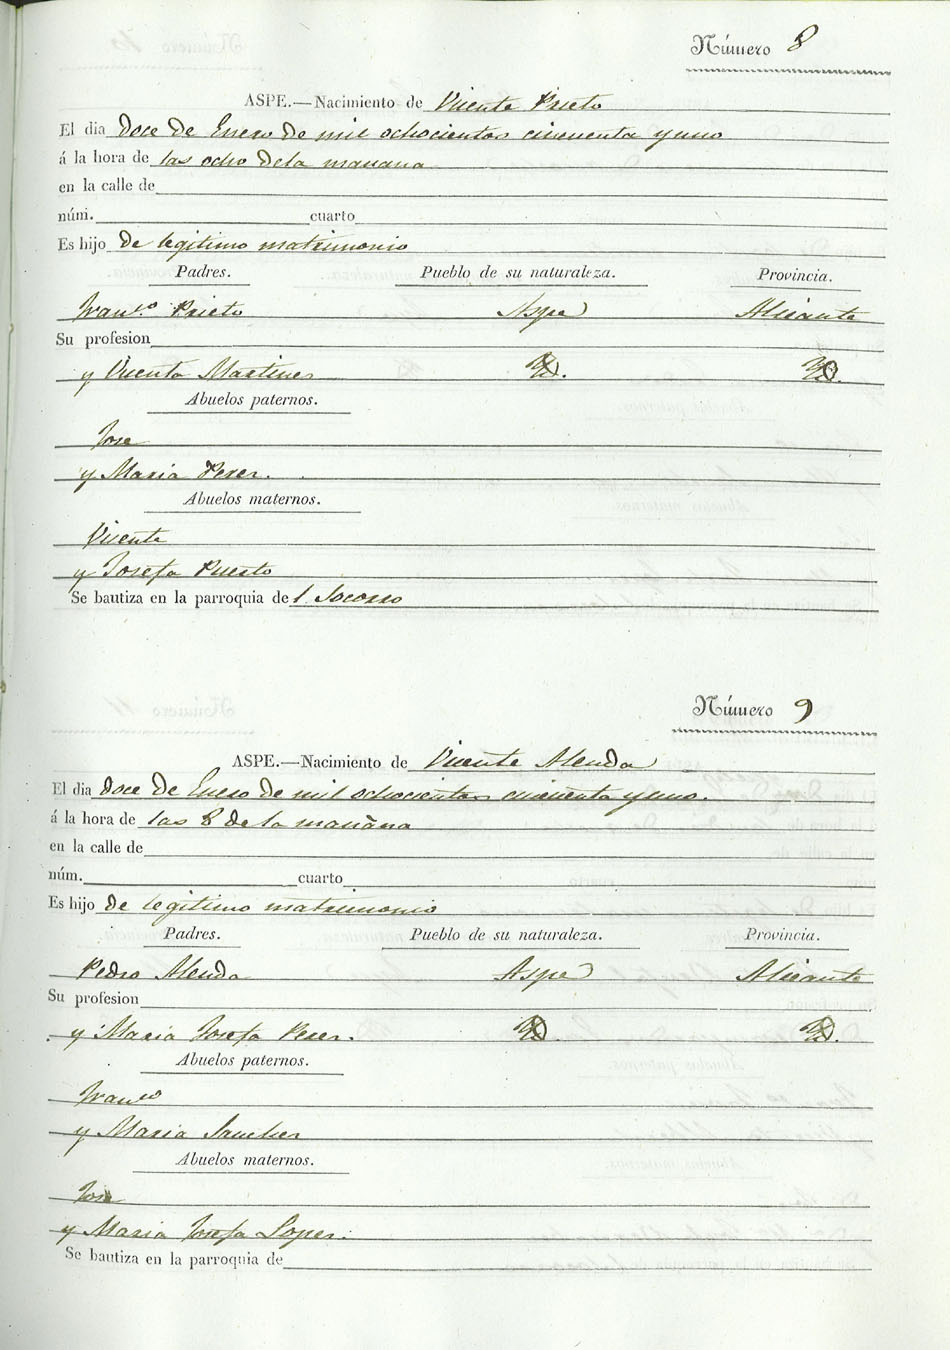 Número 8
ASPE.—Nacimiento de Vicente Prieto
El dia doce de Enero de mil ochocientos cincuenta y uno
á la hora de las ocho de la mañana
en la calle de
núm. cuarto
Es hijo de legitimo matrimonio
Padres. Pueblo de su naturaleza. Provincia.
Franco Prieto Aspe Alicante
Su profesion
y Vicenta Martines
Abuelos paternos.
Jose
y Maria Perez.
Abuelos maternos.
Vicente
y Josefa Puerto
Se bautiza en la parroquia de l Socorro
Número 9
ASPE.—Nacimiento de Vicente Alenda
El dia doce de Enero de mil ochocientos cincuenta y uno.
á la hora de las 8 de la mañana
en la calle de
núm. cuarto
Es hijo de legitimo matrimonio
Padres. Pueblo de su naturaleza. Provincia.
Pedro Alenda Aspe Alicante
Su profesion
y Maria Josefa Perez.
Abuelos paternos.
Franco
y Maria Sanchez
Abuelos maternos.
Jose
y Maria Josefa Lopez.
Se bautiza en la parroquia de